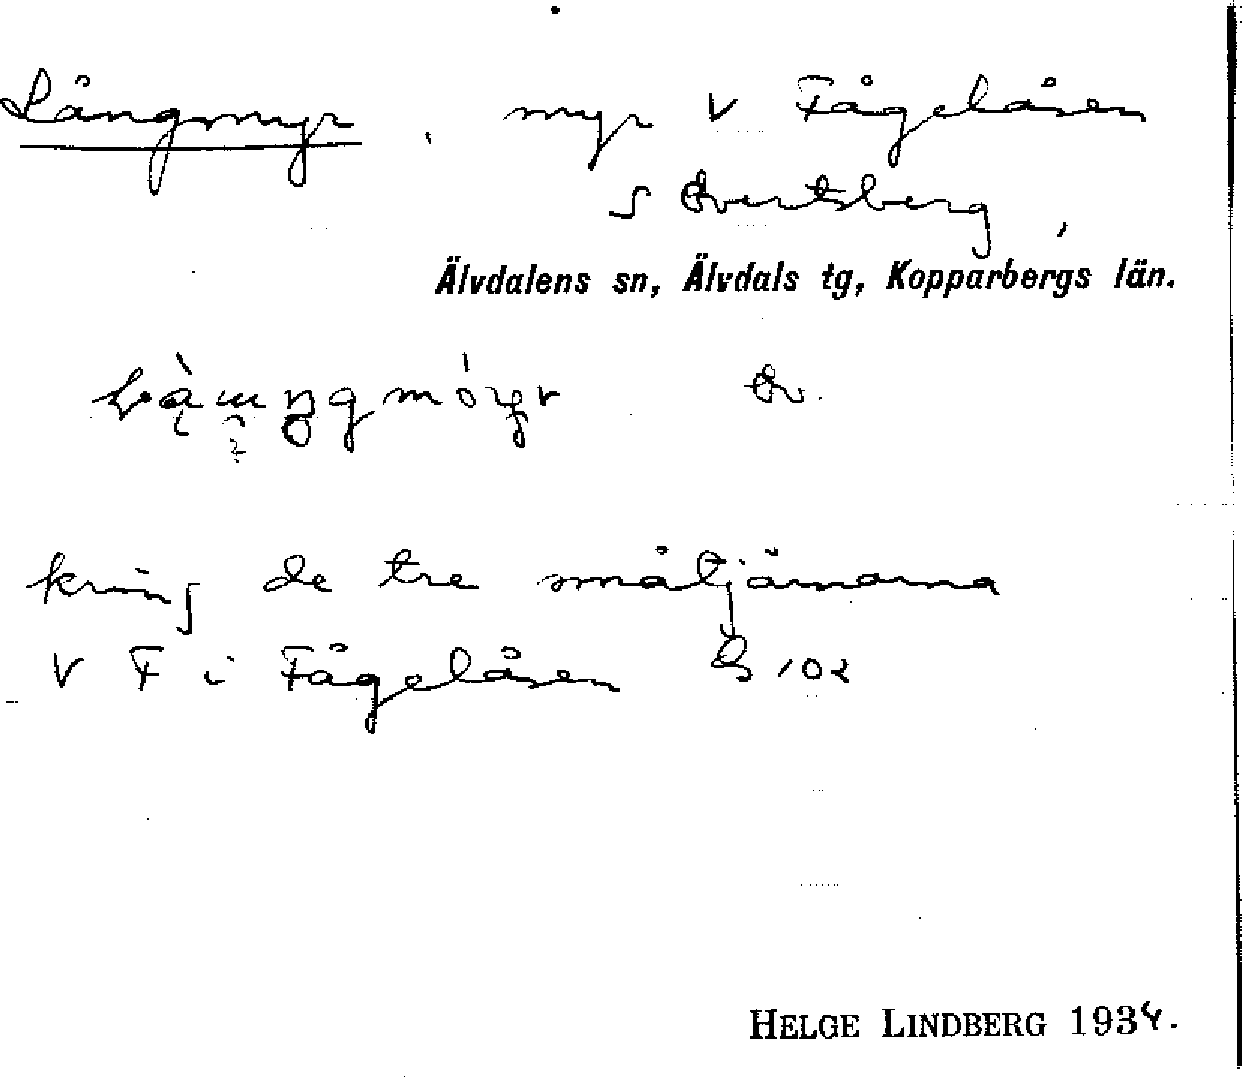 Långmyr, myr V Fågelåsen
S Evertsberg,
Älvdalens sn, Älvdals tg, Kopparbergs län.
Ev.
kring de tre småtjärnarna
V F i Fågelåsen G 102
HELGE LINDBERG 1934.